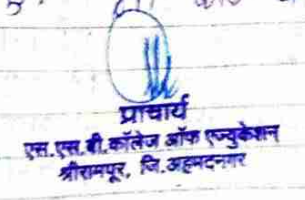 प्राचार्य
एस.एस.बी.कॉलेज ऑफ एज्युकेशन
श्रीरामपूर, जि.अहमदनगर